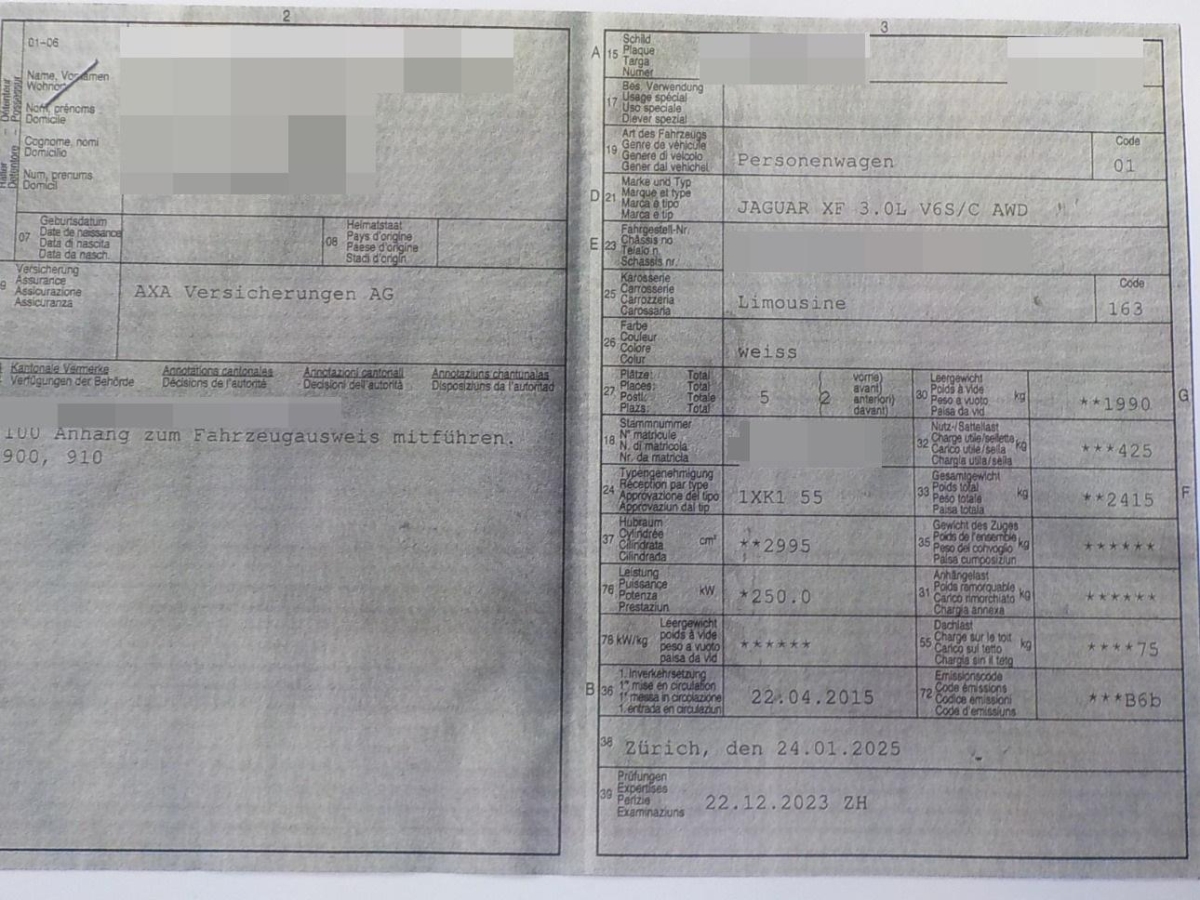 2
01-06
Name, Vornamen
Wohnort
Nom, prénoms
Domicile
Cognome, nomi
Domicilio
Num, prenums
Domicil
Halter - Détenteur
Detentore - Possessur
07
Geburtsdatum
Date de naissance
Data di nascita
Data da nasch.
08
Heimatstaat
Pays d'origine
Paese d'origine
Stadi d'origin
9
Versicherung
Assurance
Assicurazione
Assicuranza
AXA Versicherungen AG
Kantonale Vermerke
Verfügungen der Behörde
Annotations cantonales
Décisions de l'autorité
Annotazioni cantonali
Decisioni dell'autorità
Annotaziuns chantunalas
Disposiziuns da l'autoritad
100 Anhang zum Fahrzeugausweis mitführen.
900, 910
3
A 15
Schild
Plaque
Targa
Numer
17
Bes. Verwendung
Usage spécial
Uso speciale
Diever spezial
19
Art des Fahrzeugs
Genre de véhicule
Genere di veicolo
Gener dal vehichel
Personenwagen
Code
01
D 21
Marke und Typ
Marque et type
Marca e tipo
Marca e tip
JAGUAR XF 3.0L V6S/C AWD
E 23
Fahrgestell-Nr.
Châssis no
Telaio n.
Schassis nr.
25
Karosserie
Carrosserie
Carrozzeria
Carossaria
Limousine
Code
163
26
Farbe
Couleur
Colore
Colur
weiss
27
Plätze: Total
Places: Total
Posti: Totale
Plazs: Total
5 ( 2
vorne)
avant)
anteriori)
davant)
30
Leergewicht
Poids à vide
Peso a vuoto
Paisa da vid
kg
**1990
G
18
Stammnummer
N° matricule
N. di matricola
Nr. da matricla
32
Nutz-/Sattellast
Charge utile/sellette
Carico utile/sella
Chargia utila/sella
kg
***425
24
Typengenehmigung
Réception par type
Approvazione del tipo
Approvaziun dal tip
1XK1 55
33
Gesamtgewicht
Poids total
Peso totale
Paisa totala
kg
**2415
F
37
Hubraum
Cylindrée
Cilindrata
Cilindrada
cm³
**2995
35
Gewicht des Zuges
Poids de l'ensemble
Peso del convoglio
Paisa cumposiziun
kg
******
76
Leistung
Puissance
Potenza
Prestaziun
kW
*250.0
31
Anhängelast
Poids remorquable
Carico rimorchiato
Chargia annexa
kg
******
78 kW/kg
Leergewicht
poids à vide
peso a vuoto
paisa da vid
******
55
Dachlast
Charge sur le toit
Carico sul tetto
Chargia sin il tetg
kg
****75
B 36
1. Inverkehrsetzung
1re mise en circulation
1a messa in circolazione
1. entrada en circulaziun
22.04.2015
72
Emissionscode
Code émissions
Codice emissioni
Code d'emissiuns
***B6b
38
Zürich, den 24.01.2025
39
Prüfungen
Expertises
Perizie
Examinaziuns
22.12.2023 ZH